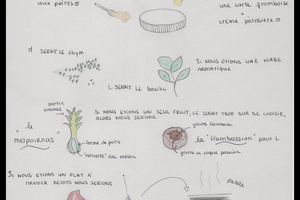 aux poires
une tarte framboise
crème pâtissière
M. SERAIT LE thym
SI NOUS ETIONS UNE HERBE
AROMATIQUE
L. SERAIT LE basilic
partie
ananas
SI NOUS ETIONS UN SEUL FRUIT, CE SERAIT TROP DUR DE CHOISIR,
ALORS NOUS SERIONS
graine framboise
le
"melpoirnas"
forme de poire
rayures du melon
la "frambassion" pour L
graine de coque passion
SI NOUS ETIONS UN PLAT A
MANGER DEMAIN NOUS SERIONS